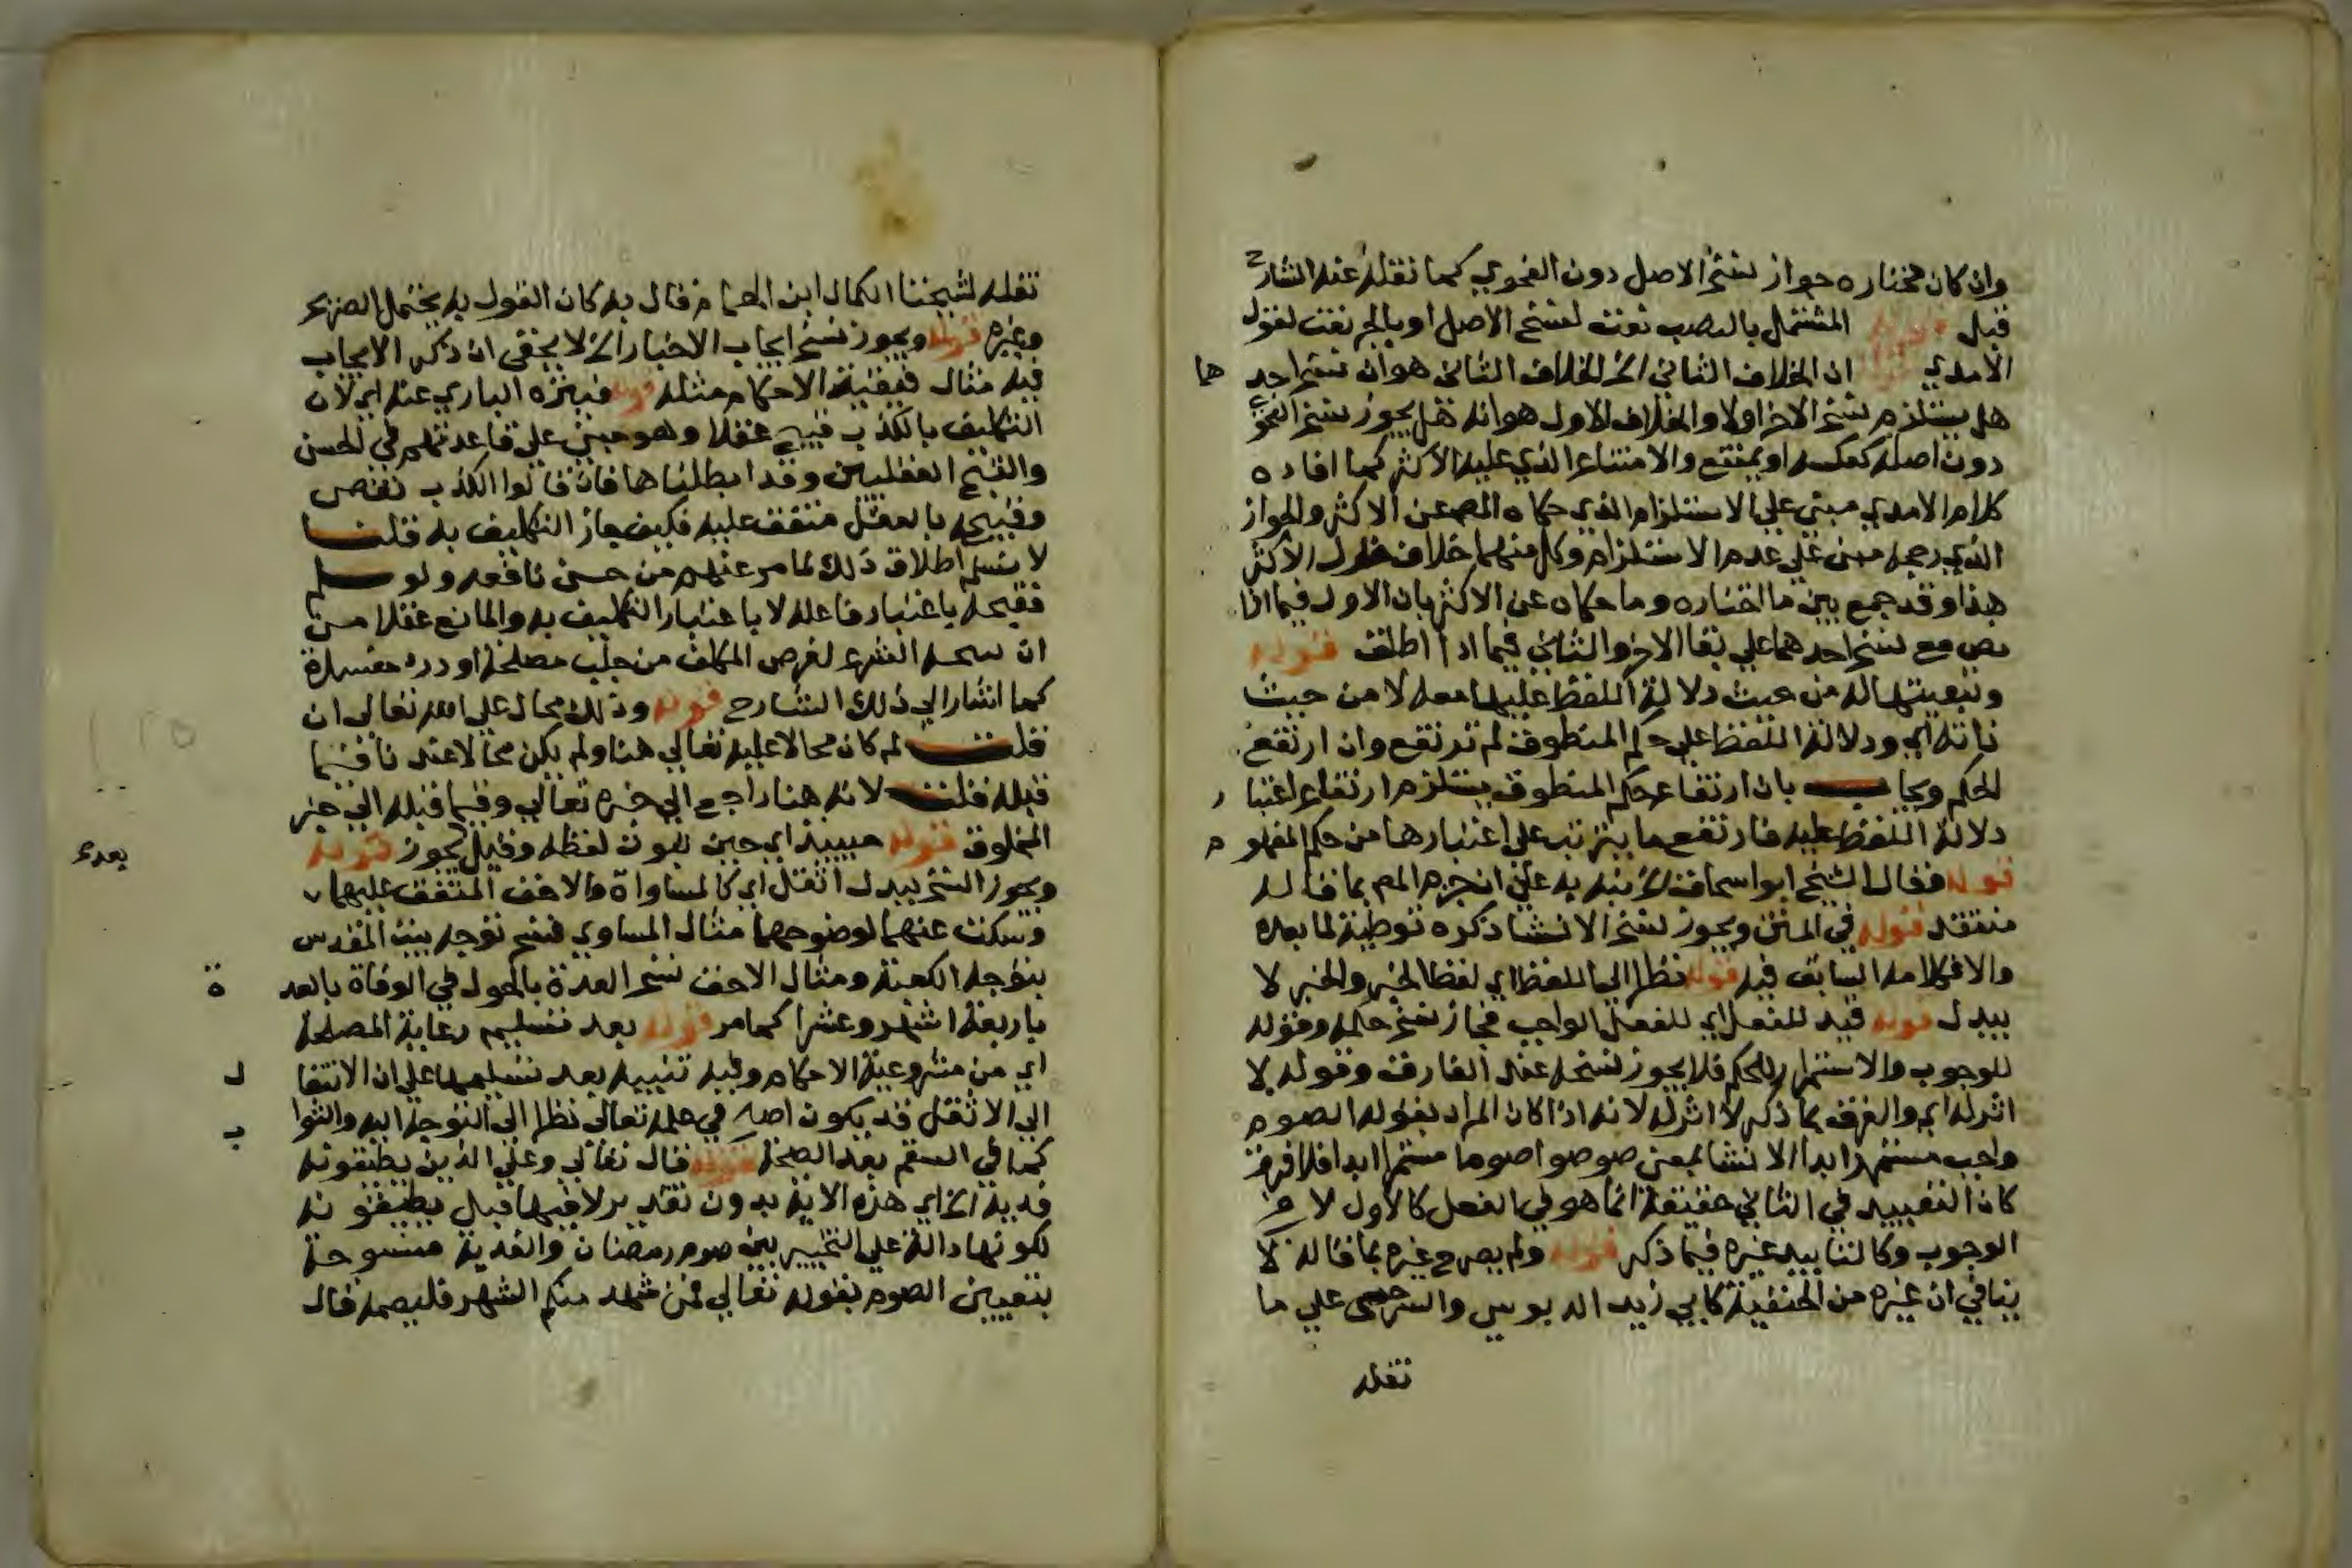 وان كان مختاره جواز نسخ الاصل دون الفحوي كما نقله عنه الشارح
قبل قوله المشتمل بالنصب نعت لنسخ الاصل او بالجر نعت لقول
الامدي قوله ان الخلاف الثاني الخ الخلاف الثاني هو ان نسخ احدهما
هل يستلزم نسخ الاخر اولا والخلاف الاول هو انه هل يجوز نسخ الفحوي
دون اصله كعكسه او يمتنع والامتناع الذي عليه الاكثر كما افاده
كلام الامدي مبني علي الاستلزام الذي حكاه المص عن الاكثر والجواز
الذي رجحه مبني علي عدم الاستلزام وكل منهما خلاف قول الاكثر
هذا وقد جمع بين ما اختاره وما حكاه عن الاكثر بان الاول فيما اذا
نص مع نسخ احدهما علي بقا الاخر والثاني فيما اذا اطلق قوله
وتبعيتها له من حيث دلالة اللفظ عليها معه لا من حيث
ذاته اي ودلالة اللفظ علي حكم المنطوق لم ترتفع وان ارتفع
الحكم ويجاب بان ارتفاع حكم المنطوق يستلزم ارتفاع اعتبار
دلالة اللفظ عليه فارتفع ما يترتب علي اعتبارها من حكم المفهوم
قوله فقال الشيخ ابو اسحاق الخ نبه به علي ان جزم المص بما قاله
منتقد قوله في المتن ويجوز نسخ الانشا ذكره توطية لما بعده
والا فكلامه السابق فيه قوله نظرا الي اللفظ اي لفظ الخبر والخبر لا
يبدل قوله قيد للفعل اي للفعل الواجب فجاز نسخ حكمه وقوله
للوجوب والاستمرار للحكم فلا يجوز نسخه عند الفارق وقوله لا
اثر له اي والفرق بما ذكر لا اثر له لانه اذا كان المراد بقوله الصوم
واجب مستمر ابدا الانشا بمعني صوموا صوما مستمرا ابدا فلا فرق
كان التقييد في الثاني حقيقة انما هو في الفعل كالاول لا في
الوجوب وكالتابيد غيره فيما ذكر قوله ولم يصرح غيره بما قاله لا
ينافي ان غيره من الحنفية كابي زيد الدبوسي والسرخسي علي ما
نقله
نقله شيخنا الكمال ابن الهمام قال به كان القول به يحتمل الصريح
وغيره قوله ويجوز نسخ ايجاب الاخبار الخ لا يخفي ان ذكر الايجاب
فيه مثال فبقية الاحكام مثله قوله فينزه الباري عنه اي لان
التكليف بالكذب قبيح عقلا وهو مبني علي قاعدتهم في الحسن
والقبح العقليين وقد ابطلناها فان قالوا الكذب نقص
وقبيحه بالعقل متفق عليه فكيف جاز التكليف به قلنا
لا نسلم اطلاق ذلك لما مر عنهم من حسن نافعه ولو سلم
فقبحه باعتبار فاعله لا باعتبار التكليف به والمانع عقلا من
ان الشرع لغرض المكلف من جلب مصلحة او درء مفسدة
كما اشار الي ذلك الشارح قوله وذلك محال علي الله تعالي ان
قلت لم كان محالا عليه تعالي هنا ولم يكن محالا عنه نافيما
قبله قلت لانه هنا راجع الي خبره تعالي وفيما قبله الي خبر
المخلوق قوله اي حين لفظه وقيل يجوز قوله
بعده
ويجوز النسخ ببدل اثقل اي كالمساواة والاخف المتفق عليهما
وسكت عنهما لوضوحهما مثال المساوي فنسخ توجه بيت المقدس
بتوجه الكعبة ومثال الاخف نسخ العدة بالحول في الوفاة بالعدة
باربعة اشهر وعشرا كما مر قوله بعد تسليم رعاية المصلحة
اي من مشروعية الاحكام وفيه تنبيه بعد تسليمها علي ان الانتقال
الي الاثقل قد يكون في علمه تعالي نظرا الي التوجه اليه والثواب
كما في السقم بعد الصحة قوله قال تعالي وعلي الذين يطيقونه
فدية الخ اي هذه الاية بدون تقدير لا فيها قبل يطيقونه
لكونها دالة علي التخيير بين صوم رمضان والفدية منسوخة
بتعيين الصوم بقوله تعالي فمن شهد منكم الشهر فليصمه قال